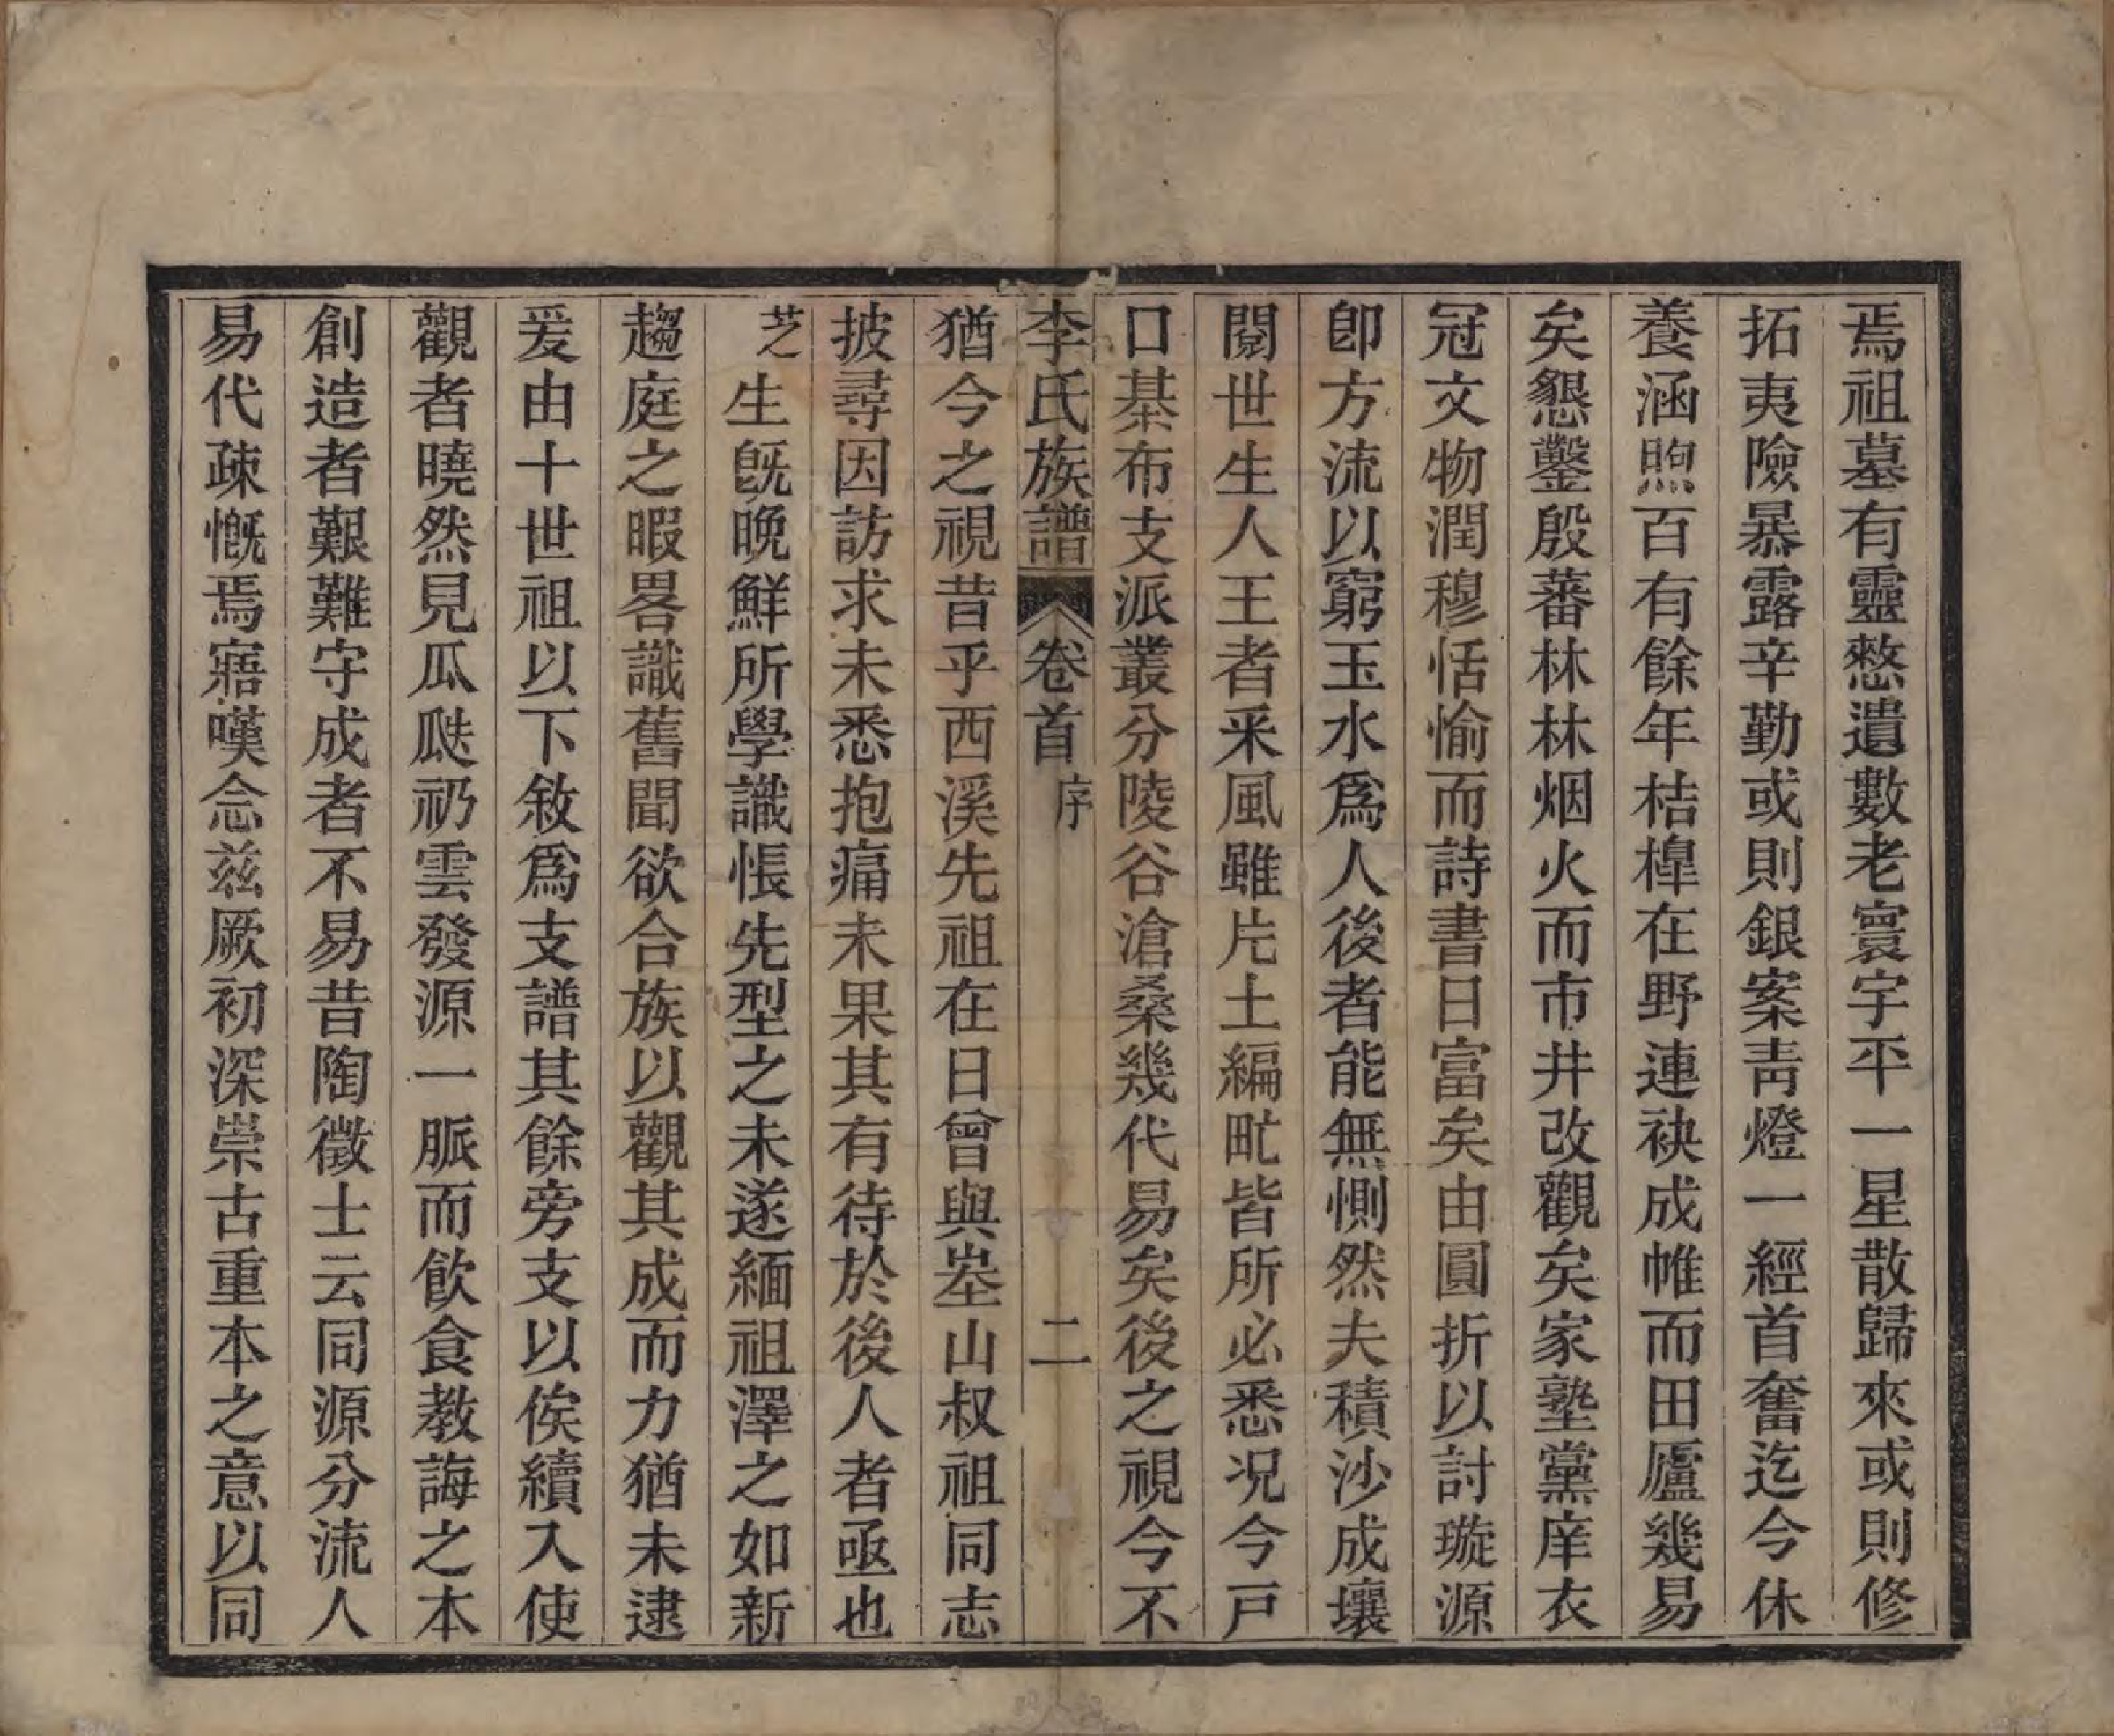 焉祖墓有靈憗遺數老寰宇平一星散歸來或則修
拓夷險暴露辛勤或則銀案青燈一經首奮迄今休
養涵煦百有餘年桔槔在野連袂成帷而田廬幾易
矣懇鑿殷蕃林林烟火而市井改觀矣家塾黨庠衣
冠文物潤穆恬愉而詩書日富矣由圓折以討璇源
卽方流以窮玉水爲人後者能無惻然夫積沙成壤
閱世生人王者采風雖片土編甿皆所必悉况今戸
口棊布支派叢分陵谷滄桑幾代易矣後之視今不
李氏族譜 卷首 序 二
猶今之視昔乎西溪先祖在日曾與峚山叔祖同志
披尋因訪求未悉抱痛未果其有待於後人者亟也
芝生旣晚鮮所學識悵先型之未遂緬祖澤之如新
趨庭之暇畧識舊聞欲合族以觀其成而力猶未逮
爰由十世祖以下敘爲支譜其餘旁支以俟續入使
觀者曉然見瓜瓞礽雲發源一脈而飲食教誨之本
創造者艱難守成者不易昔陶徵士云同源分流人
易代疎慨焉寤嘆念兹厥初深崇古重本之意以同